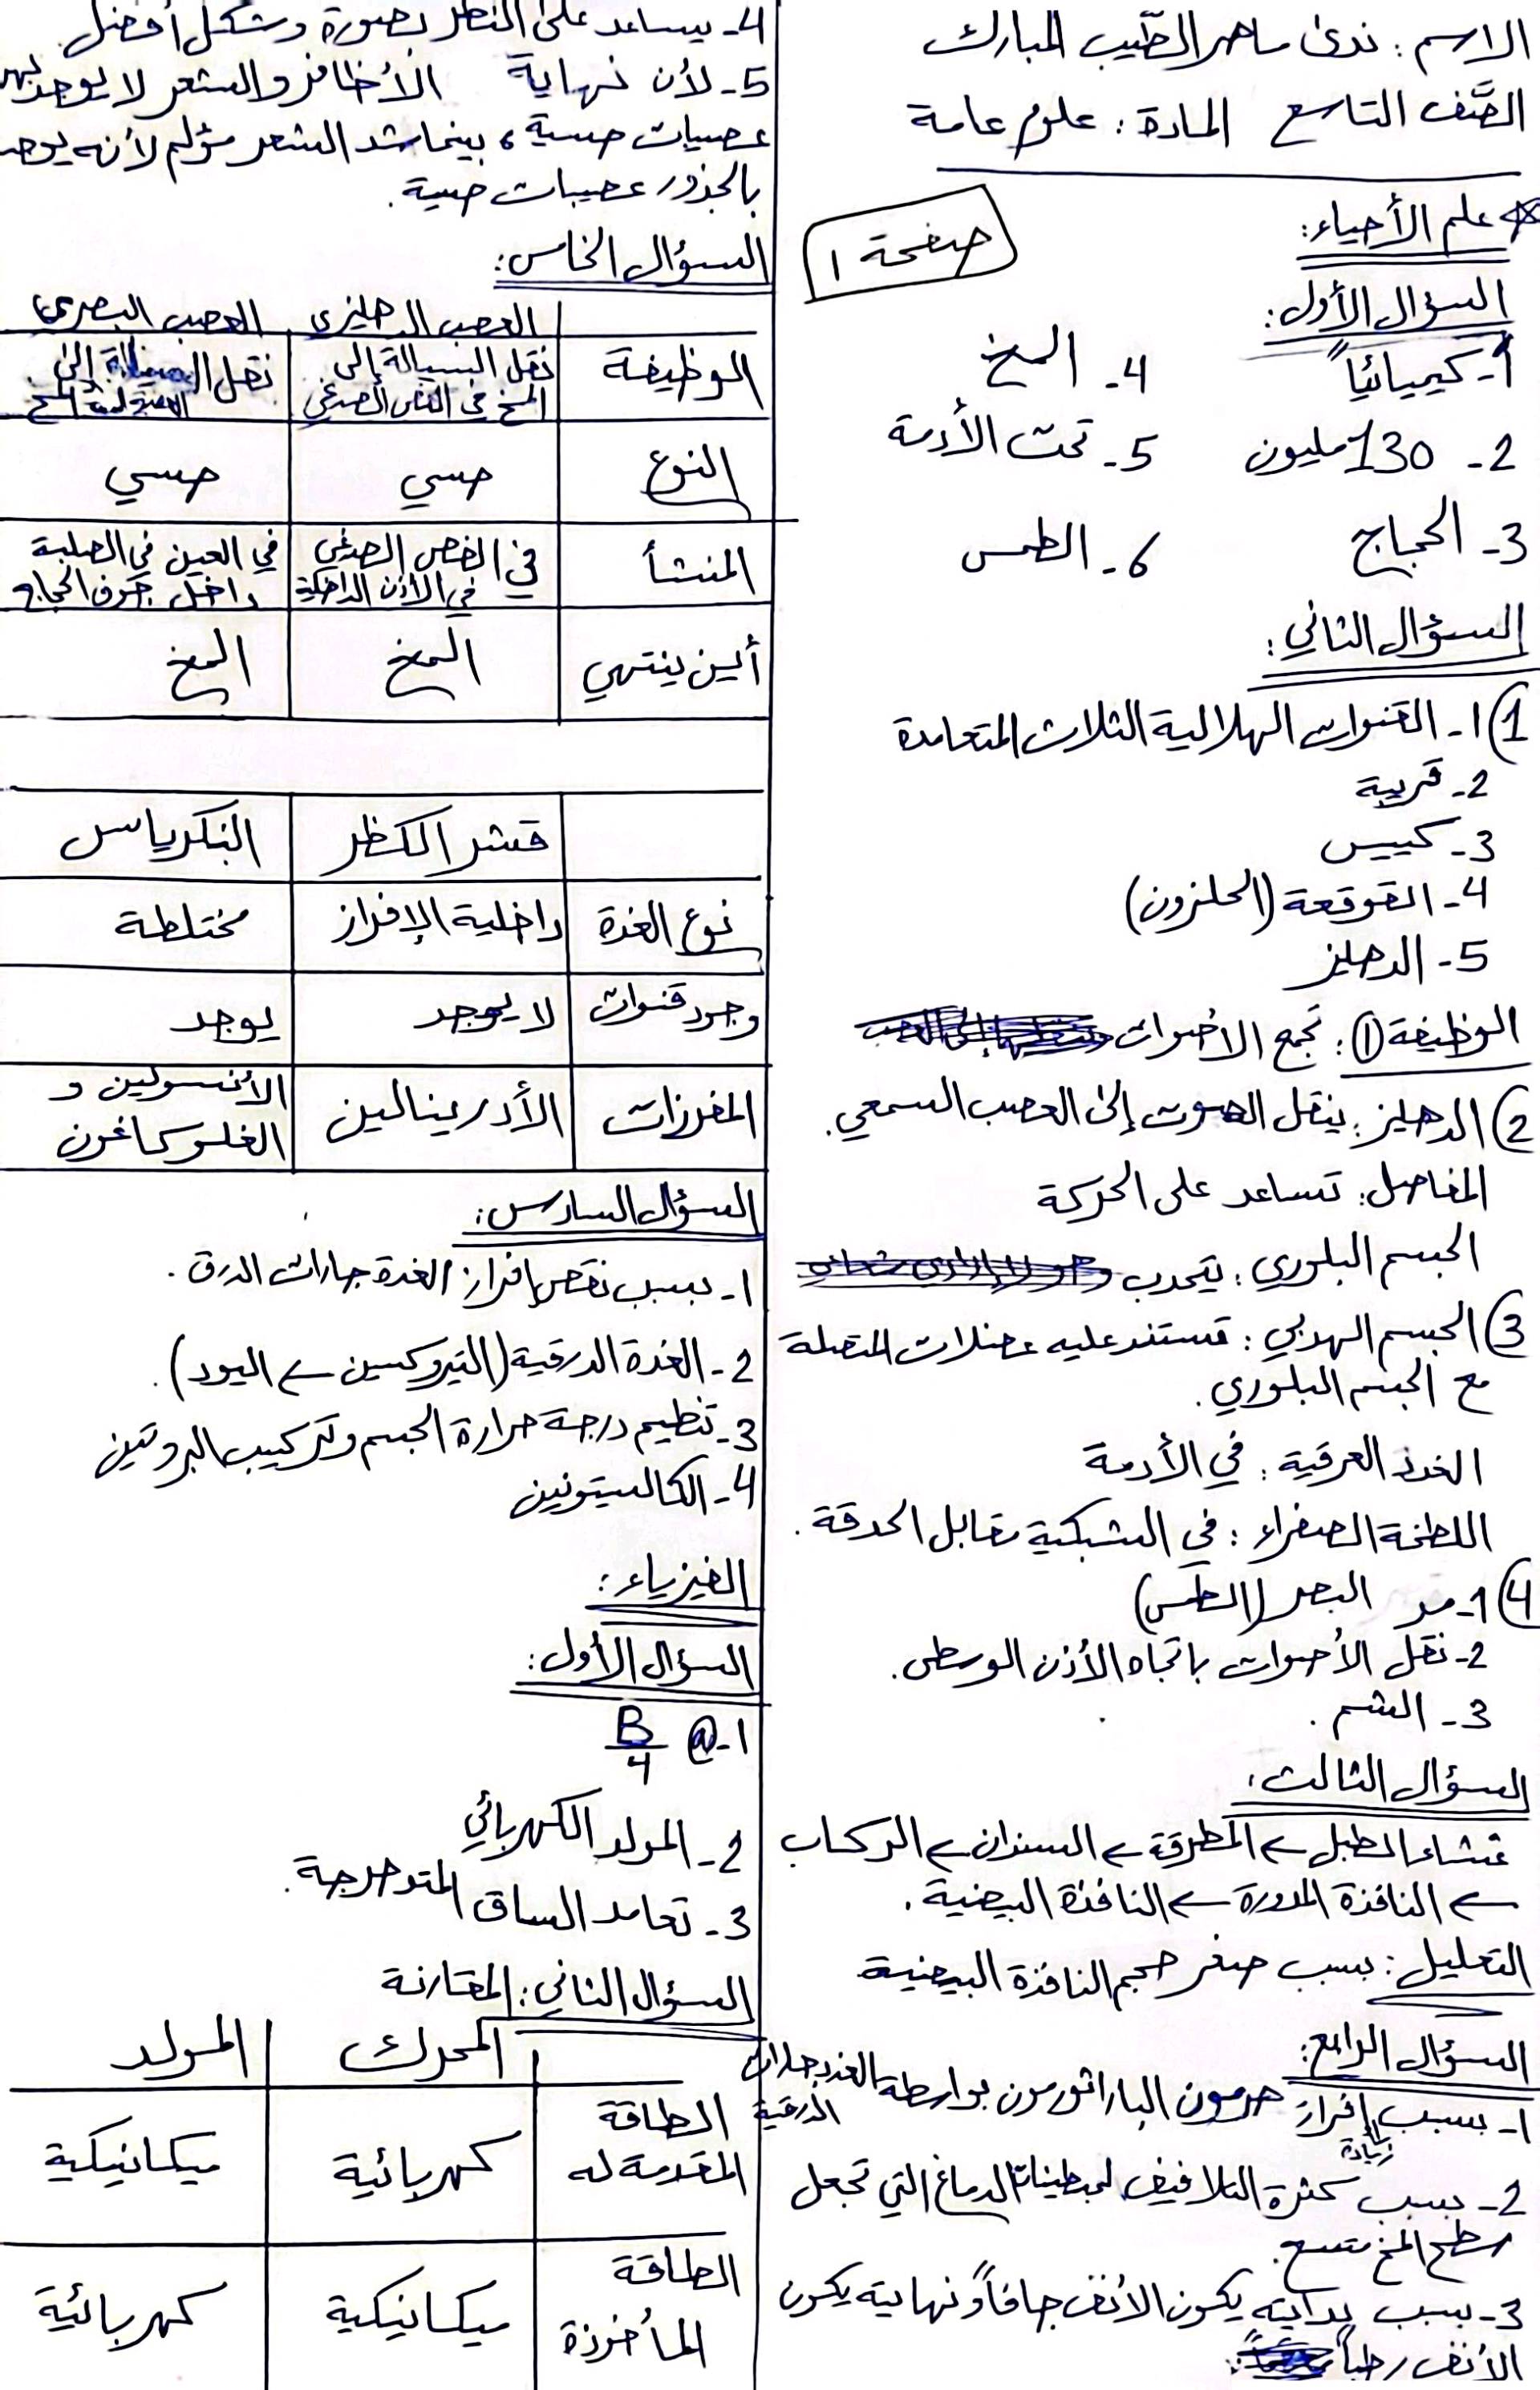 الاسم: ندى ماهر الطيب المبارك
الصَّف التاسع المادة: علوم عامة
صفحة ١
* علم الأحياء:
السؤال الأول:
1- كيميائياً
4- المخ
2- 130 مليون
5- تحت الأدمة
3- الحجاج
6- الطمس
السؤال الثاني:
1) 1- القنوات الهلالية الثلاث المتعامدة
2- قريبة
3- كييس
4- القوقعة (الحلزون)
5- الدهليز
الوظيفة ①: تجمع الأصوات
2) الدهليز: ينقل الصوت إلى العصب السمعي.
المفاصل: تساعد على الحركة
الجسم البلوري: يتحدب
3) الجسم الهدبي: تستند عليه عضلات المتصلة
مع الجسم البلوري.
الغدد العرقية: في الأدمة
اللطخة الصفراء: في الشبكية مقابل الحدقة.
4) 1- مد البصر (الطمس)
2- نقل الأصوات باتجاه الأذن الوسطى.
3- الشم.
السؤال الثالث:
غشاء الطبل ← المطرقة ← السندان ← الركاب
← النافذة المدورة ← النافذة البيضية.
التعليل: بسبب صغر حجم النافذة البيضية
السؤال الرابع:
1- بسبب زيادة إفراز هرمون الباراثورمون بواسطة الغدد جارات الدرقية
2- بسبب كثرة التلافيف لمبطينات الدماغ التي تجعل
سطح المخ متسع.
3- بسبب بدايته يكون الأنف جافاً ونهايته يكون
الأنف رطباً
4- يساعد على النظر بصورة وشكل أفضل.
5- لأن نهاية الأظافر والشعر لا يوجد بهم
عصبيات حسية، بينما شد الشعر مؤلم لأنه يوجد
بالجذور عصيبات حسية.
السؤال الخامس:
العصب الدهليزي العصب البصري
الوظيفة نقل السيالة إلى المخ في الفص الصدغي نقل إلى المخ
النوع حسي حسي
المنشأ في الفص الصدغي في الأذن الداخلية في العين في الصلبة داخل جوف الحجاج
أين ينتهي المخ المخ
قشر الكظر البنكرياس
نوع الغدة داخلية الإفراز مختلطة
وجود قنوات لا يوجد يوجد
المفرزات الأدرينالين الأنسولين و الغلوكاغون
السؤال السادس:
1- بسبب نقص إفراز الغدة جارات الدرق.
2- الغدة الدرقية (التيروكسين ← اليود).
3- تنظيم درجة حرارة الجسم وتركيب البروتين
4- الكالسيتونين
الفيزياء:
السؤال الأول:
1- @ B/4
2- المولد الكهربائي
3- تعامد الساق المتدحرجة.
السؤال الثاني: المقارنة
المحرك المولد
الطاقة المقدمة له كهربائية ميكانيكية
الطاقة المأخوذة ميكانيكية كهربائية